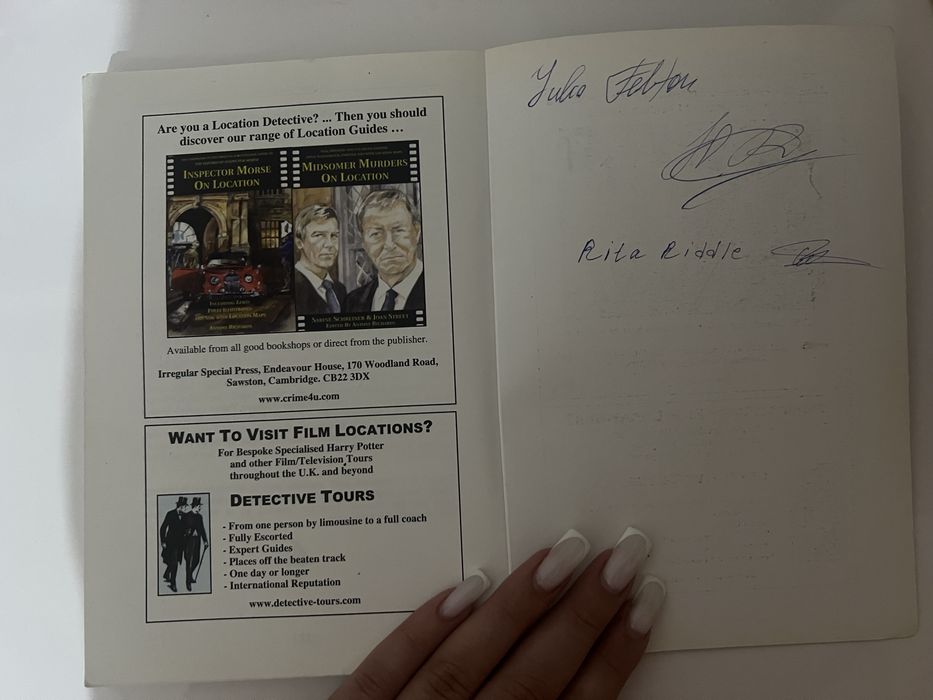 Are you a Location Detective? ... Then you should
discover our range of Location Guides ...
INSPECTOR MORSE
ON LOCATION
INCLUDING LEWIS
FULLY ILLUSTRATED
ANTONY RICHARDS
MIDSOMER MURDERS
ON LOCATION
SABINE SCHREINER & JOAN STREET
EDITED BY ANTONY RICHARDS
Available from all good bookshops or direct from the publisher.
Irregular Special Press, Endeavour House, 170 Woodland Road,
Sawston, Cambridge. CB22 3DX
www.crime4u.com
WANT TO VISIT FILM LOCATIONS?
For Bespoke Specialised Harry Potter
and other Film/Television Tours
throughout the U.K. and beyond
DETECTIVE TOURS
- From one person by limousine to a full coach
- Fully Escorted
- Expert Guides
- Places off the beaten track
- One day or longer
- International Reputation
www.detective-tours.com
Felton
Rita Riddle